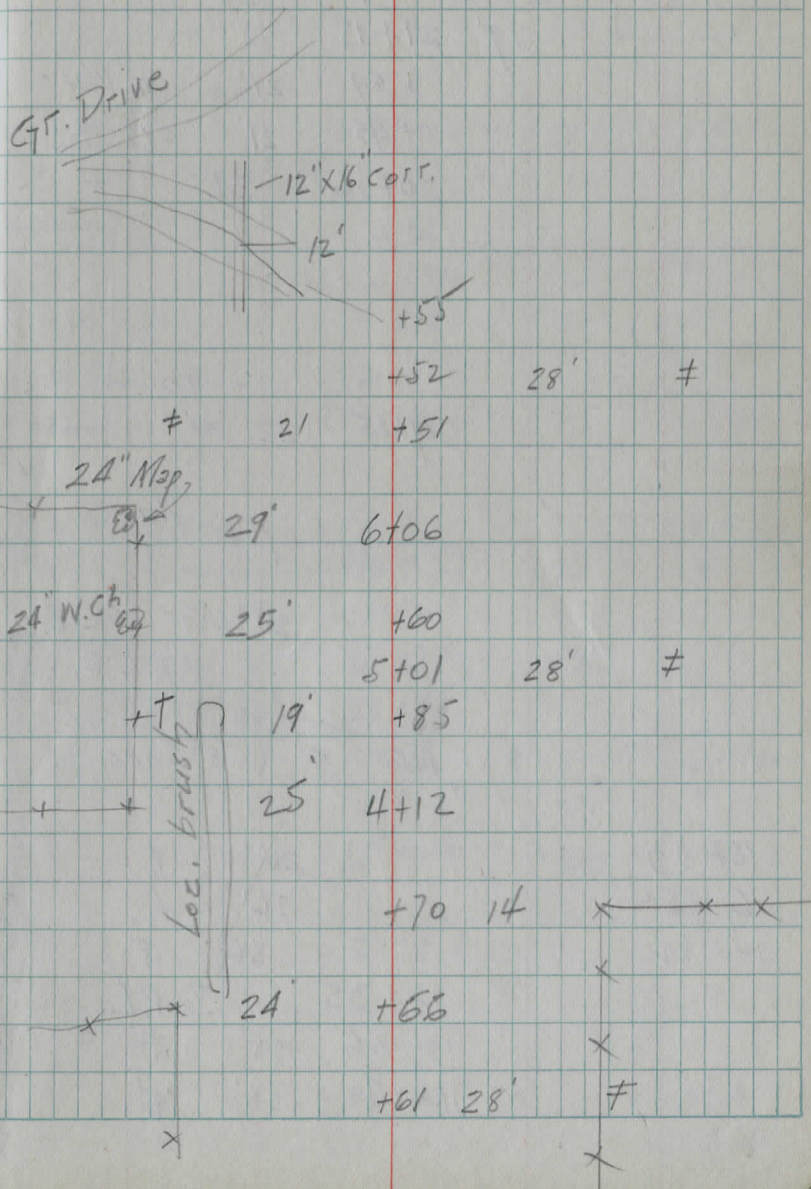 Gr. Drive
12"X16" corr.
12'
+55
+52 28' ‡
‡ 21 +51
24" Map.
29' 6+06
24" W.Ch. 25' +60
5+01 28' ‡
T 19' +85
25' 4+12
Loc. brush
+70 14
24' +66
+61 28' ‡